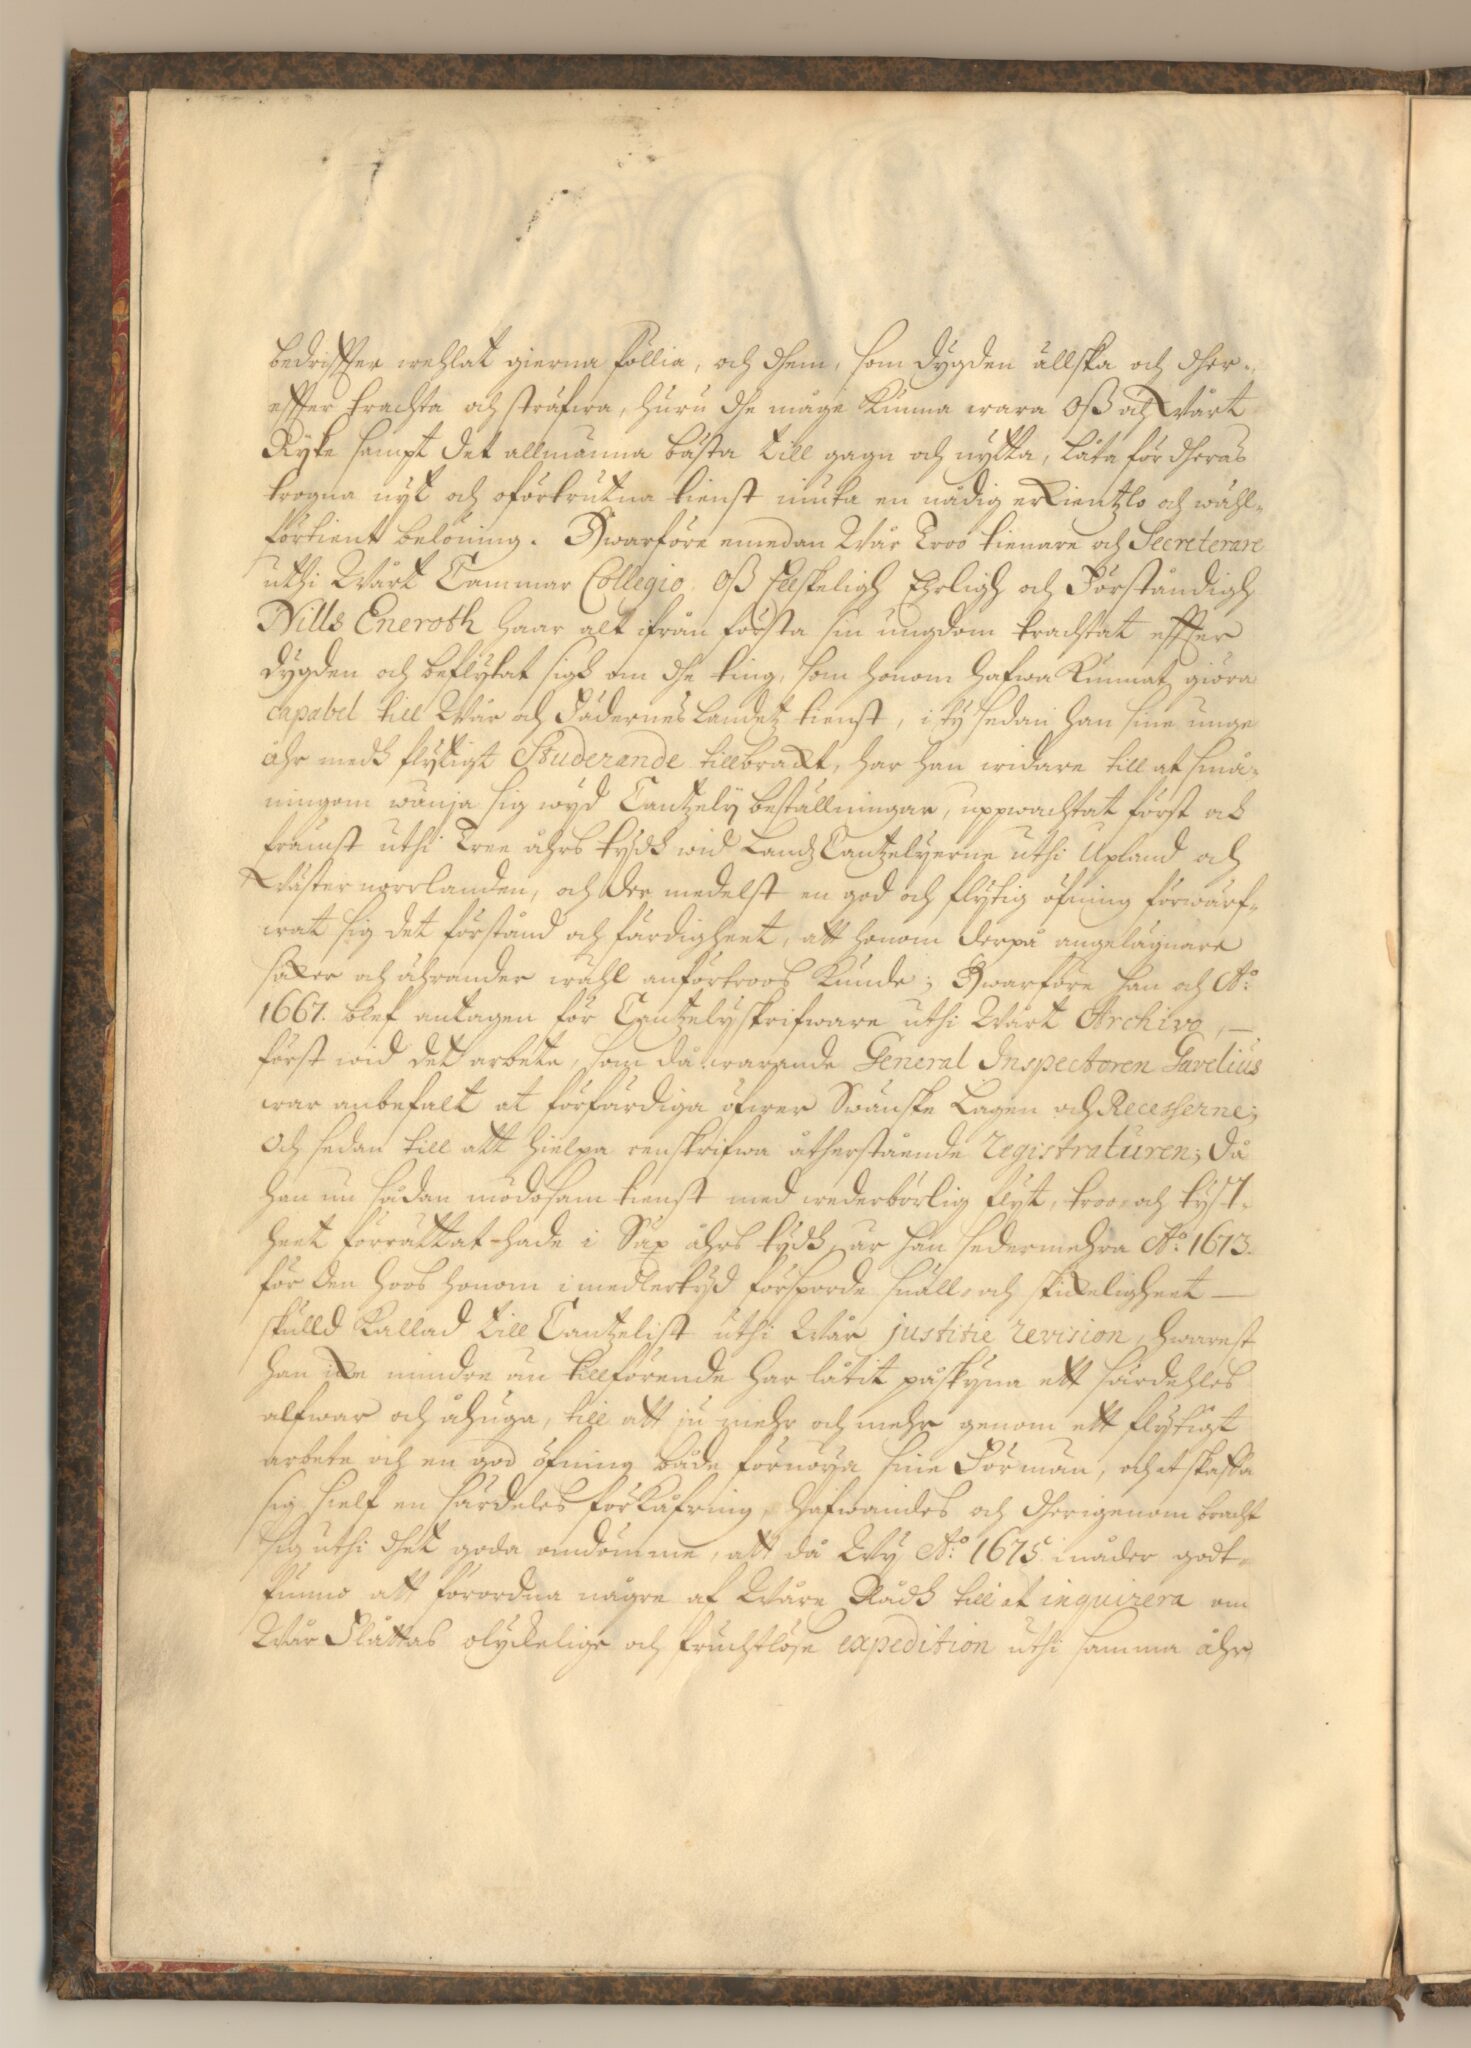 bedriffter wehlat gierna föllia, och dhem, som dygden ällska och dher-
effter trachta och sträfwa, huru dhe måge kunna wara Oß och Wårt
Ryke sampt det allmänna bästa till gagn och nytta, låta för dheras
trogna nyt och oförtrutna tienst niuta en nådig erkientzlo och wähl-
förtient belöning. Hwarföre emedan Wår Troo tienare och Secreterare
uthi Wårt Cammar Collegio, Oß Elskeligh Ehrligh och Förståndigh
Nills Eneroth haar alt ifrån första sin ungdom trachtat effter
dygden och beflytat sigh om dhe ting, som honom hafwa kunnat giöra
capabel till Wår och Fädernes landetz tienst, i ty sedan han sine unge
åhr medh flytigt Studerande tillbracht, har han widare till at små-
ningom wänja sig wyd Cantzely beställningar, uppwachtat först och
främst uthi Tree åhrs tydh wid Landz Cantzelyerne uthi Upland och
Wäster norrlanden, och der medelst en god och flytig öfning förwärf-
wat sig det förstånd och färdigheet, att honom derpå angelägnare
saker och ährander wähl anförtroos kunde; Hwarföre han och A:o
1667. blef antagen för Cantzelyskrifware uthi Wårt Archivo, —
först wid det arbete, som då warande General Inspectoren Gavelius
war anbefalt at förfärdiga öfwer Swänske Lagen och Recesserne;
Och sedan till att hielpa renskrifwa åtherstående registraturen; Då
han nu sådan mödosam tienst med wederbörlig flyt, troo- och tyst-
heet förrättat hade i Sex åhrs tydh, är han sedermehra A:o 1673.
för den hoos honom i medlertyd försporde snäll- och skickeligheet —
skulld kallad till Cantzelist uthi Wår justitie revision, hwarest
han icke mindre än tillförende har låtit påskyna ett särdehles
alfwar och åhuga, till att ju mehr och mehr genom ett flytigt
arbete och en god öfning både förnöya sine Förmän, och at skaffa
sig sielf en särdeles förkåfring, Hafwandes och dherigenom bracht
sig uthi dhet goda omdömme, att då Wy A:o 1675 i nåder godt-
funno att förordna någre af Wåre Rådh till at inquirera om
Wår Flåttas olyckelige och fruchtlöse expedition uthi samma åhr